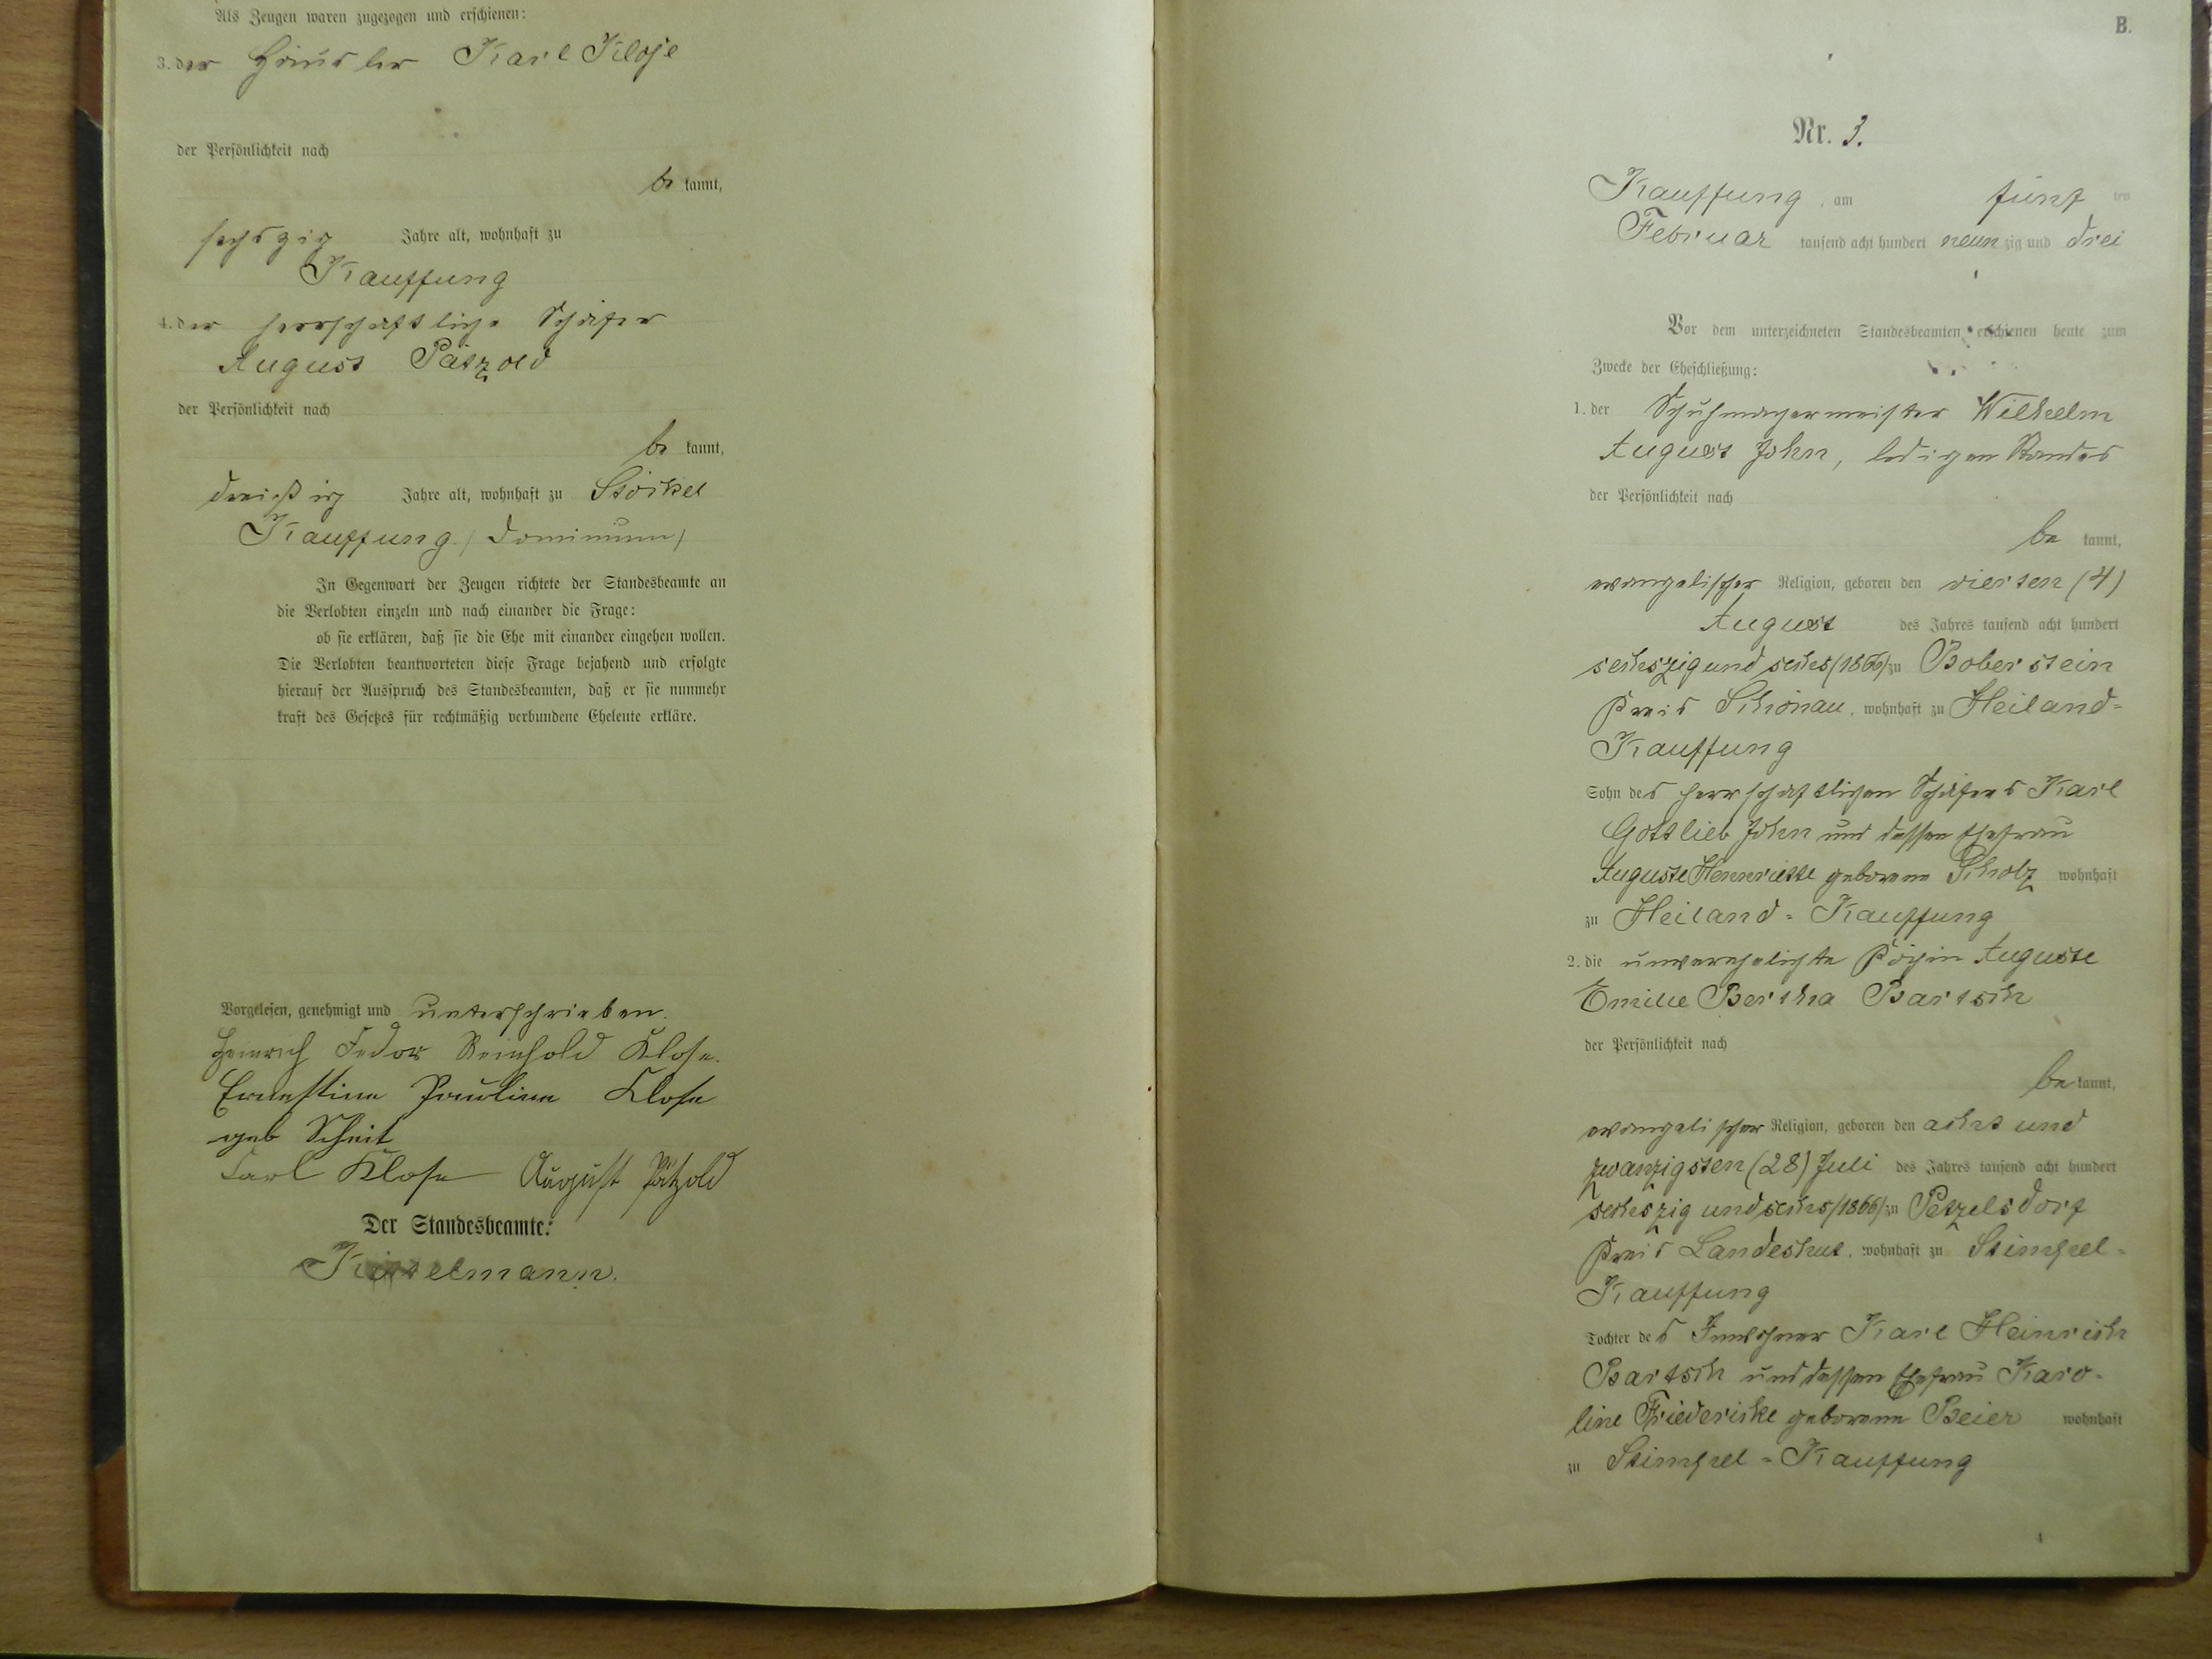 Als Zeugen waren zugezogen und erschienen:
3. der Häusler Karl Klose
der Persönlichkeit nach
be kannt,
sechszig Jahre alt, wohnhaft zu
Kauffung
4. der herrschaftliche Schäfer
August Pätzold
der Persönlichkeit nach
be kannt,
dreißig Jahre alt, wohnhaft zu Stöckel
Kauffung (Dominium)
In Gegenwart der Zeugen richtete der Standesbeamte an
die Verlobten einzeln und nach einander die Frage:
ob sie erklären, daß sie die Ehe mit einander eingehen wollen.
Die Verlobten beantworteten diese Frage bejahend und erfolgte
hierauf der Ausspruch des Standesbeamten, daß er sie nunmehr
kraft des Gesetzes für rechtmäßig verbundene Eheleute erkläre.
Vorgelesen, genehmigt und unterschrieben.
Heinrich Fedor Reinhold Klose.
Ernestine Pauline Klose
geb Scheit
Carl Klose August Pätzold
Der Standesbeamte:
B.
Nr. 3.
Kauffung, am fünf ten
Februar tausend acht hundert neun zig und drei
Vor dem unterzeichneten Standesbeamten erschienen heute zum
Zwecke der Eheschließung:
1. der Schuhmachermeister Wilhelm
August John, ledigen Standes
der Persönlichkeit nach
be kannt,
evangelischer Religion, geboren den vierten (4)
August des Jahres tausend acht hundert
sechszig und sechs (1866) zu Boberstein
Kreis Schönau, wohnhaft zu Heiland-
Kauffung
Sohn des herrschaftlichen Schäfers Karl
Gottlieb John und dessen Ehefrau
Auguste Hennriette geborene Scholz wohnhaft
zu Heiland-Kauffung
2. die unverehelichte Köchin Auguste
Emilie Bertha Bartsch
der Persönlichkeit nach
be kannt,
evangelischer Religion, geboren den acht und
zwanzigsten (28) Juli des Jahres tausend acht hundert
sechszig und sechs (1866) zu Petzelsdorf
Kreis Landeshut, wohnhaft zu Stimpel-
Kauffung
Tochter des Inwohner Karl Heinrich
Bartsch und dessen Ehefrau Karo-
line Friedericke geborene Beier wohnhaft
zu Stimpel-Kauffung
4